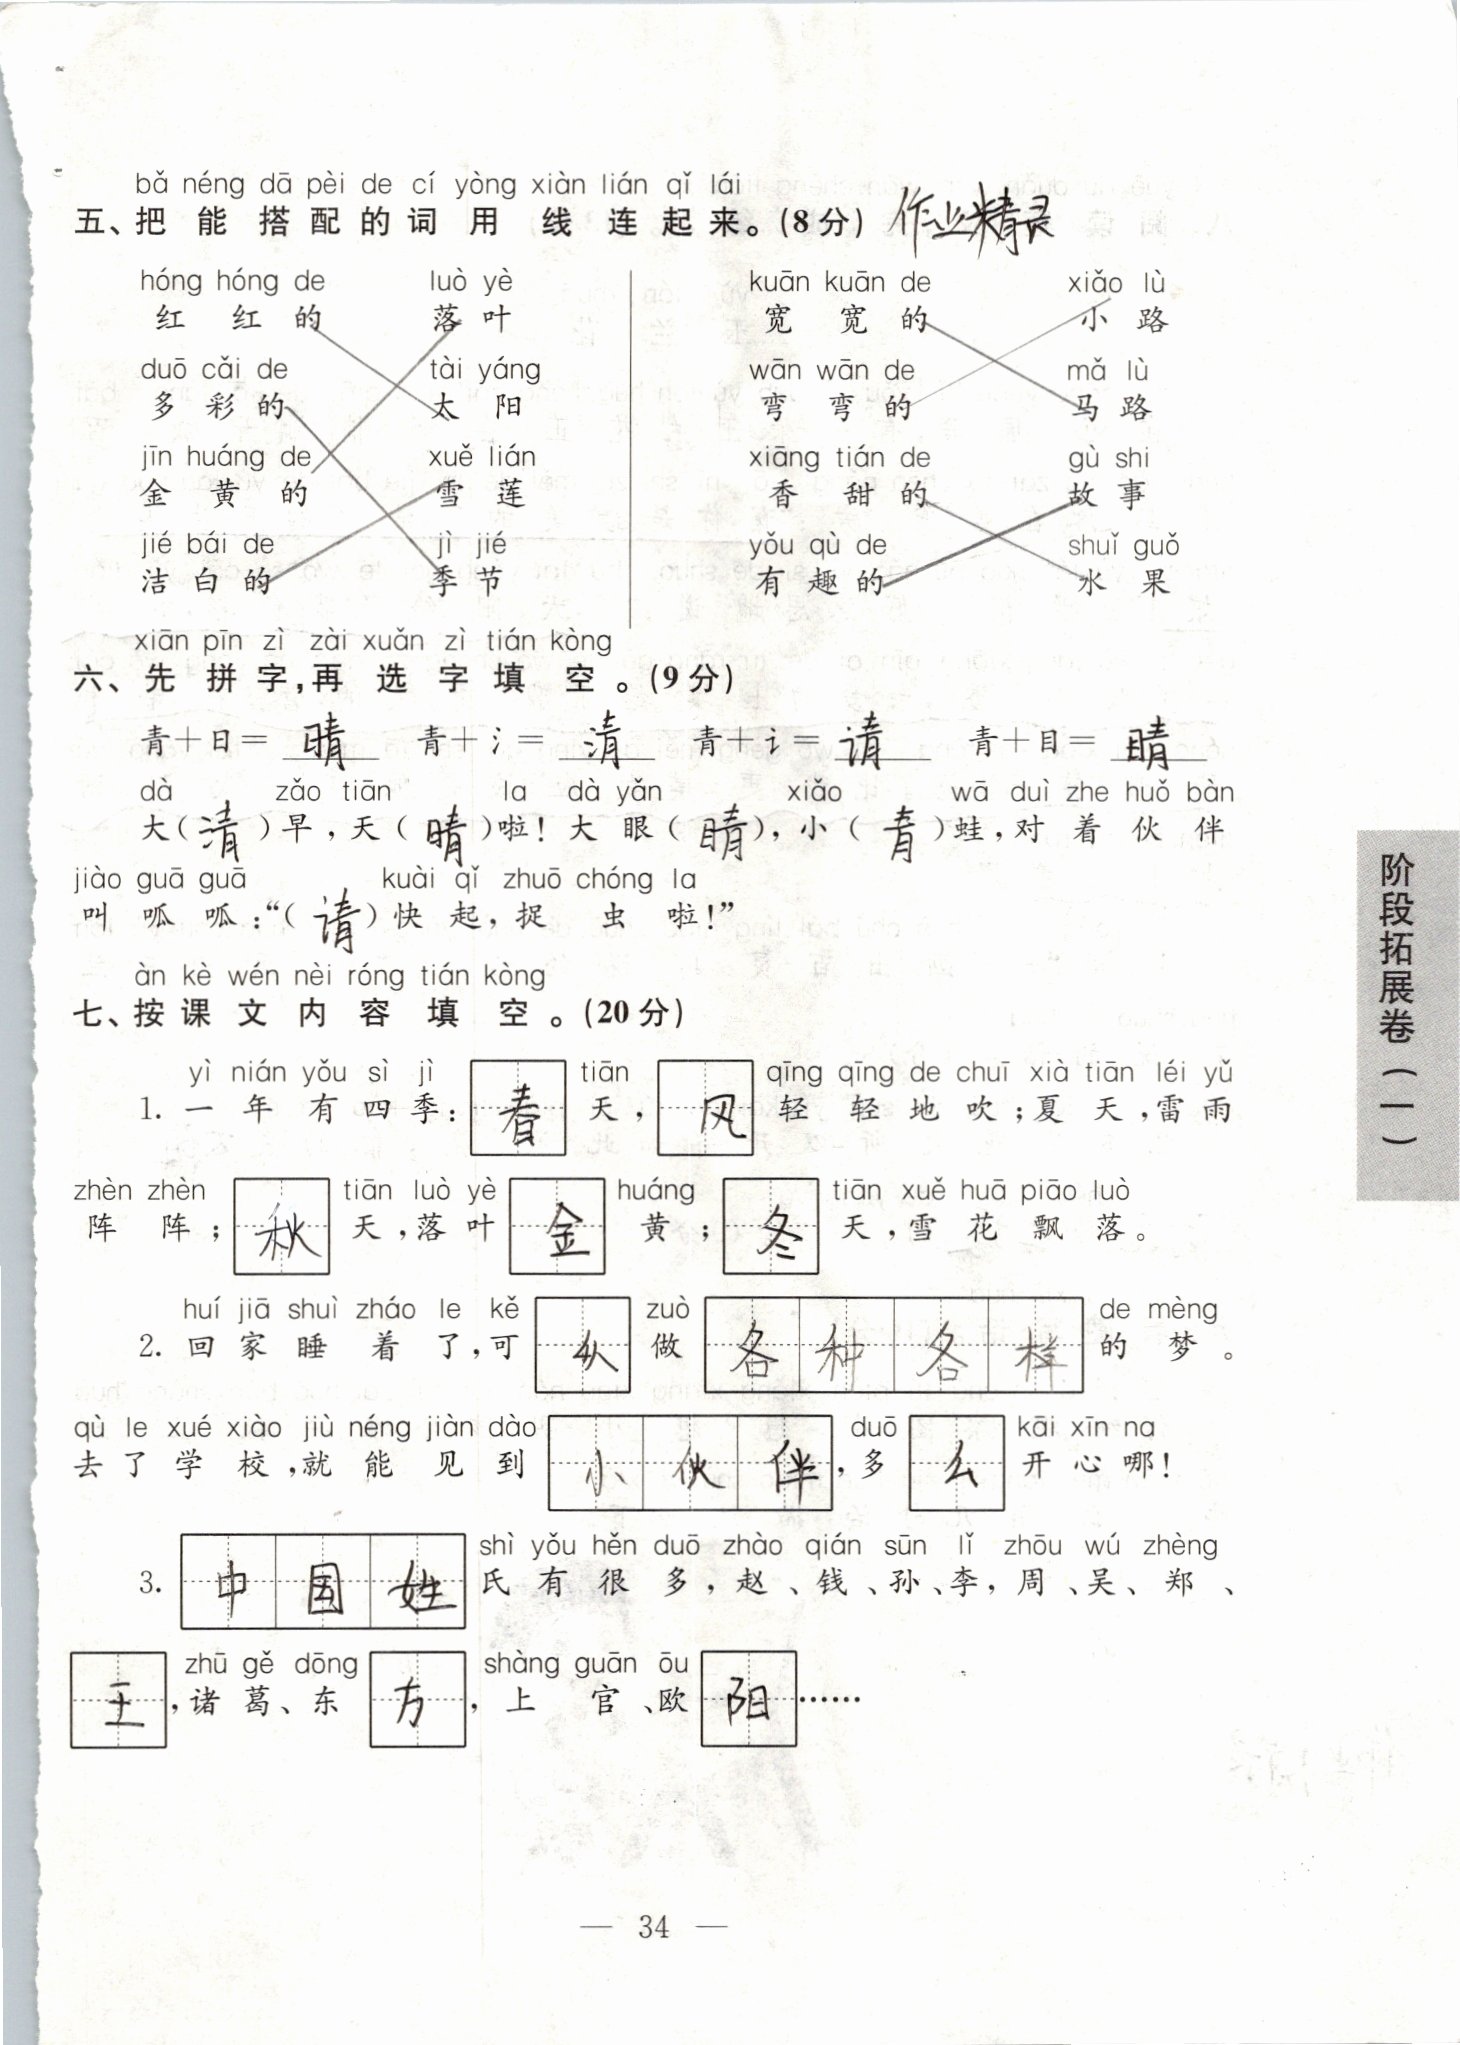 bǎ néng dā pèi de cí yòng xiàn lián qǐ lái
五、把能搭配的词用线连起来。(8分) 作业精灵
hóng hóng de luò yè kuān kuān de xiǎo lù
红红的 落叶 宽宽的 小路
duō cǎi de tài yáng wān wān de mǎ lù
多彩的 太阳 弯弯的 马路
jīn huáng de xuě lián xiāng tián de gù shi
金黄的 雪莲 香甜的 故事
jié bái de jì jié yǒu qù de shuǐ guǒ
洁白的 季节 有趣的 水果
xiān pīn zì zài xuǎn zì tián kòng
六、先拼字,再选字填空。(9分)
青+日=晴 青+氵=清 青+讠=请 青+目=睛
dà zǎo tiān la dà yǎn xiǎo wā duì zhe huǒ bàn
大(清)早,天(晴)啦!大眼(睛),小(青)蛙,对着伙伴
jiào guā guā kuài qǐ zhuō chóng la
叫呱呱:“(请)快起,捉虫啦!”
àn kè wén nèi róng tián kòng
七、按课文内容填空。(20分)
yì nián yǒu sì jì tiān qīng qīng de chuī xià tiān léi yǔ
1. 一年有四季:春天,风轻轻地吹;夏天,雷雨
zhèn zhèn tiān luò yè huáng tiān xuě huā piāo luò
阵阵;秋天,落叶金黄;冬天,雪花飘落。
huí jiā shuì zháo le kě zuò de mèng
2. 回家睡着了,可以做各种各样的梦。
qù le xué xiào jiù néng jiàn dào duō kāi xīn na
去了学校,就能见到小伙伴,多么开心哪!
shì yǒu hěn duō zhào qián sūn lǐ zhōu wú zhèng
3. 中国姓氏有很多,赵、钱、孙、李,周、吴、郑、
zhū gě dōng shàng guān ōu
王,诸葛、东方,上官、欧阳……
— 34 —
阶段拓展卷(一)